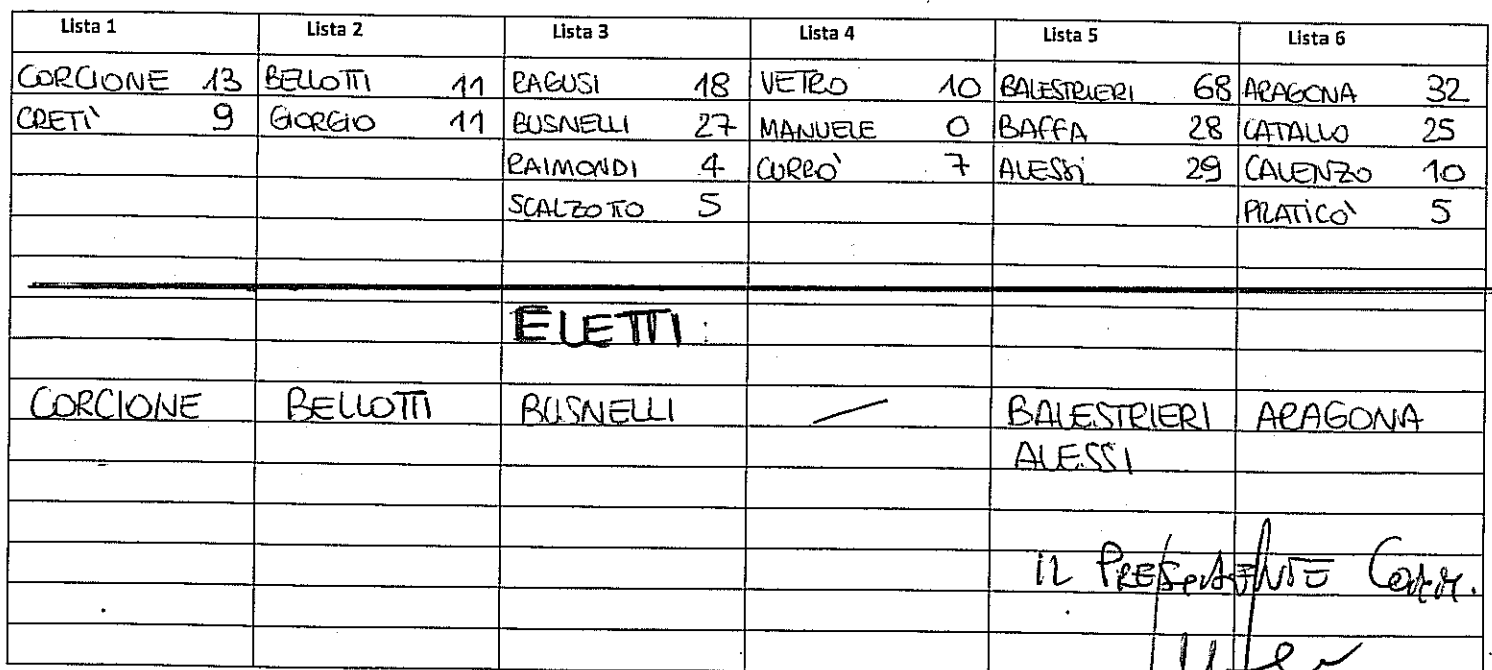 Lista 1 Lista 2 Lista 3 Lista 4 Lista 5 Lista 6
CORCIONE 13 BELLOTTI 11 RAGUSI 18 VETRO 10 BALESTRIERI 68 ARAGONA 32
CRETI' 9 GIORGIO 11 BUSNELLI 27 MANUELE 0 BAFFA 28 CATALLO 25
RAIMONDI 4 CURRO' 7 ALESSi 29 CALENZO 10
SCALZOTTO 5 PRATICO' 5
ELETTI:
CORCIONE BELLOTTI BUSNELLI / BALESTRIERI ARAGONA
ALESSI
IL